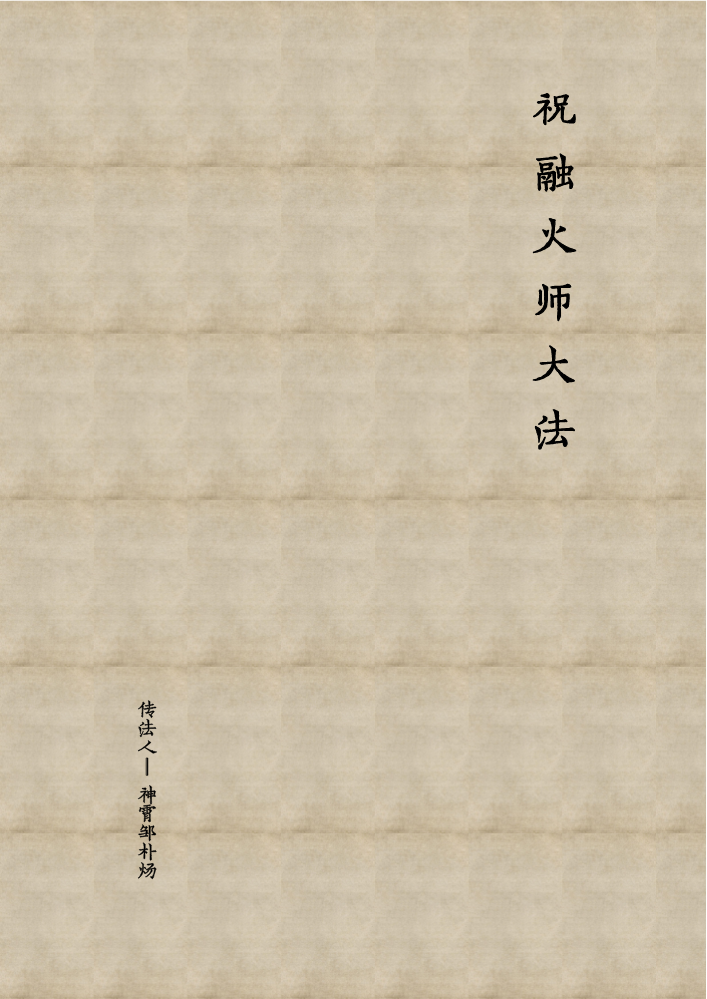 祝融火师大法
传法人—神霄邹朴炀